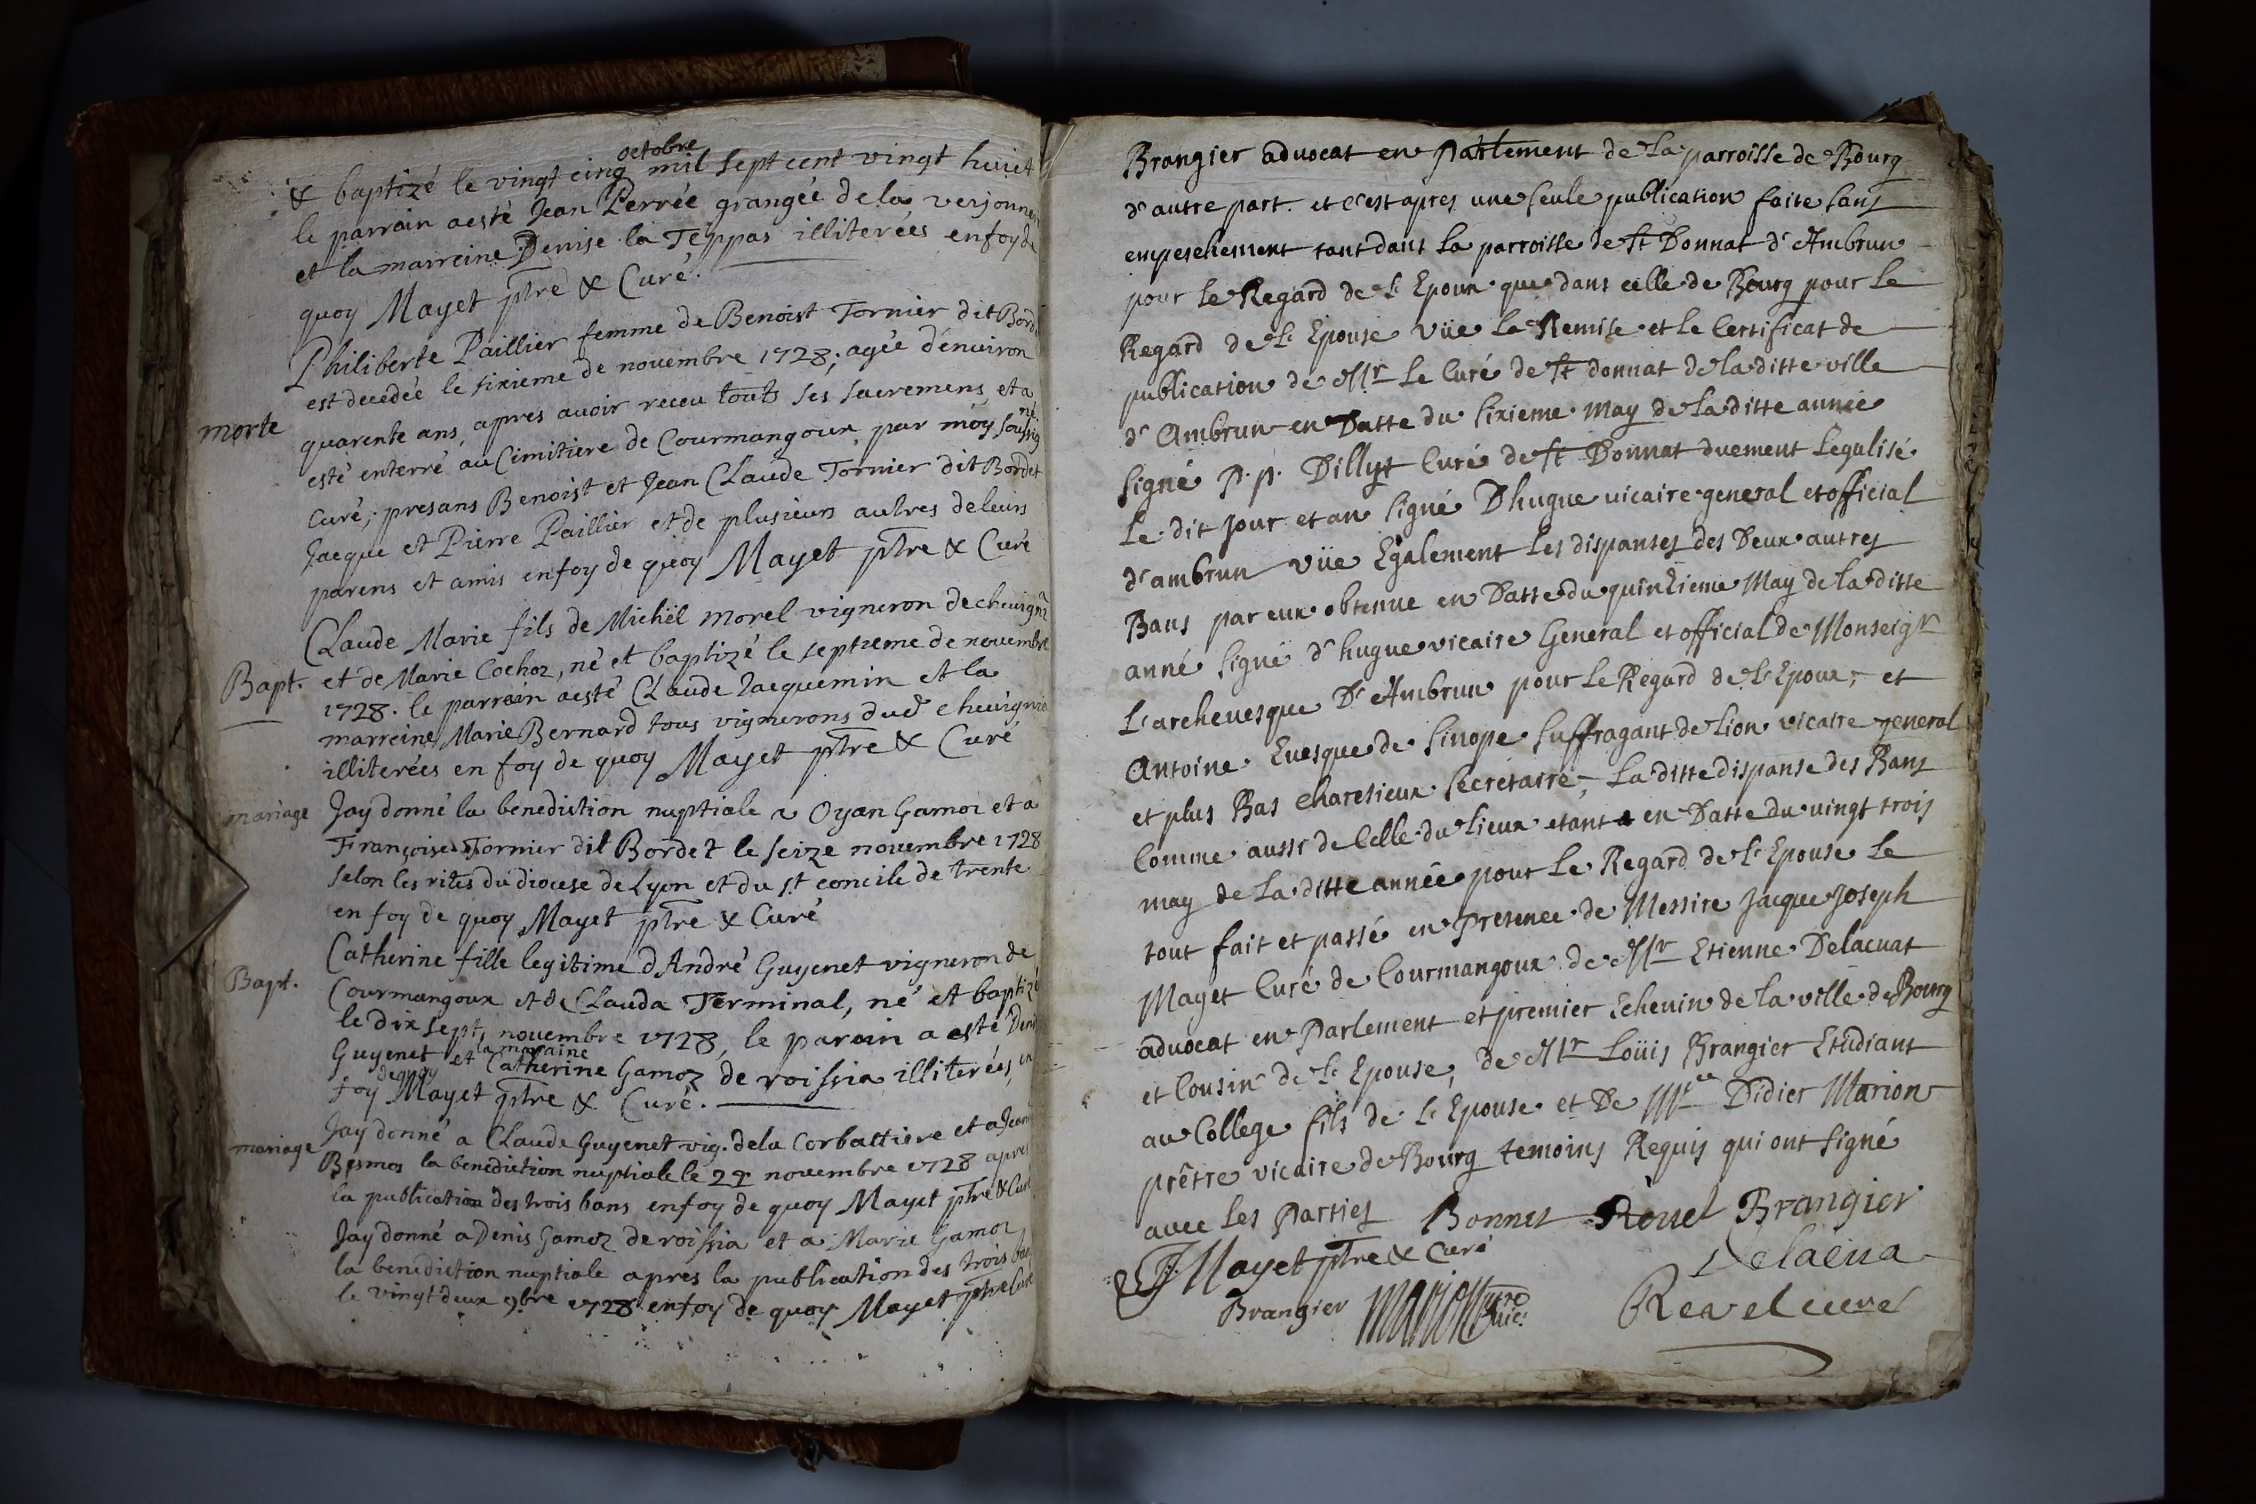 & baptizé le vingt cinq octobre mil sept cent vingt huict
le parrain a esté Jean Perrée grangée de la verjonner
et la marreine Denise la Teppas illiterées en foy de
quoy Mayet ptre & Curé.
Philiberte Paillier femme de Benoist Tornier dit Bordet
est decedée le sixieme de novembre 1728; agée d'enuiron
morte
quarente ans, apres auoir receu touts ses sacremens, et a
esté enterré au Cimitiere de Courmangoux par moy soussigné
Curé; presans Benoist et Jean Claude Tornier dit Bordet
Jacque et Pierre Paillier et de plusieurs autres de leurs
parens et amis en foy de quoy Mayet ptre & Curé
Claude Marie fils de Michël morel vigneron de cheuign
Bapt. et de Marie Cochoz, né et baptizé le septieme de novembre
1728. le parrain a esté Claude Jacquemin et la
marreine Marie Bernard tous vignerons dud cheuignia
illiterées en foy de quoy Mayet ptre & Curé
mariage Jay donné la benediction nuptiale a Oyan Gamoz et a
Françoise Tornier dit Bordet le seize novembre 1728
selon les rites du diocese de Lyon et du st concile de trente
en foy de quoy Mayet ptre & Curé
Catherine fille legitime d'André Guyenet vigneron de
Bapt. Courmangoux et de Clauda Terminal, né et baptizé
le dix sept novembre 1728, le parain a esté Denis
Guyenet et la maraine Catherine Gamoz de roissia illiterées, en
foy de quoy Mayet ptre & Curé.
mariage Jay donné a Claude Guyenet vig. de la Corbattiere et a Jeanne
Besmos la benediction nuptiale le 22 novembre 1728 apres
la publication des trois bans en foy de quoy Mayet ptre & Curé
Jay donné a Denis Gamoz de roissia et a Marie Gamoz
la benediction nuptiale apres la publication des trois bans
le vingt deux 9bre 1728 en foy de quoy Mayet ptre Curé
Brangier aduocat en Parlement de La parroisse de Bourg
d'autre part. et c'est apres une seule publication faite sans
empeschement tant dans la parroisse de St Donnat d'Ambrun
pour le Regard de l'Epoux que dans celle de Bourg pour le
Regard de l'Epouse vüe la Remise et le Certificat de
publication de Mr Le Curé de St donnat de la ditte ville
d'Ambrun en Datte du sixieme may de la ditte année
signé p.p. Dillyt Curé de St Donnat duement Legalisé
Le dit jour et an signé D'hugue uicaire general et official
d'ambrun vüe Egalement les dispanses des Deux autres
Bans par eux obtenue en Datte du quinzieme May de la ditte
anné signé d'hugue vicaire General et official de Monseigr
L'archeuesque D'Ambrun pour le Regard de l'Epoux; et
Antoine Euesque de Sinope Suffragant de Lion vicaire general
et plus Bas Charesieux secretaire; La ditte dispanse des Bans
Comme aussi de Celle du Lieux etant en Datte du uingt trois
may de La ditte année pour Le Regard de l'Epouse le
tout fait et passé en presence de Messire Jacque Joseph
Mayet Curé de Courmangoux de Mr Etienne Delacuat
aduocat en Parlement et premier Echeuin de la ville de Bourg
et Cousin de l'Epouse, de Mr Loüis Brangier Etudiant
au College fils de l'Epouse et De Mre Didier Marion
prêtre vicaire de Bourg temoins Requis qui ont signé
auec les parties Bonnet Reuel Brangier
J Mayet ptre & Curé Delacua
Brangier marion ptre vic. Reuel curé